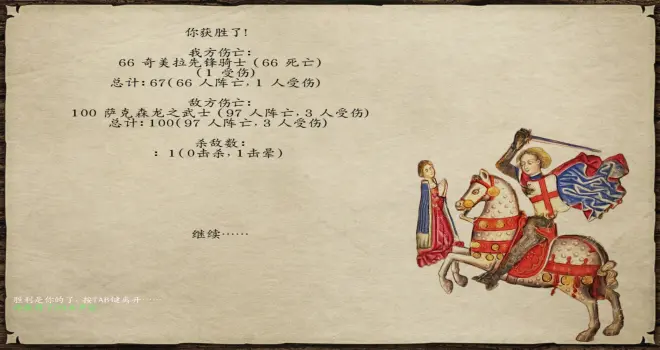 你获胜了!
我方伤亡:
66 奇美拉先锋骑士 (66 死亡)
(1 受伤)
总计: 67(66 人阵亡, 1 人受伤)
敌方伤亡:
100 萨克森龙之武士 (97 人阵亡, 3 人受伤)
总计: 100(97 人阵亡, 3 人受伤)
杀敌数:
: 1(0击杀, 1击晕)
继续……
胜利是你的了，按TAB键离开……